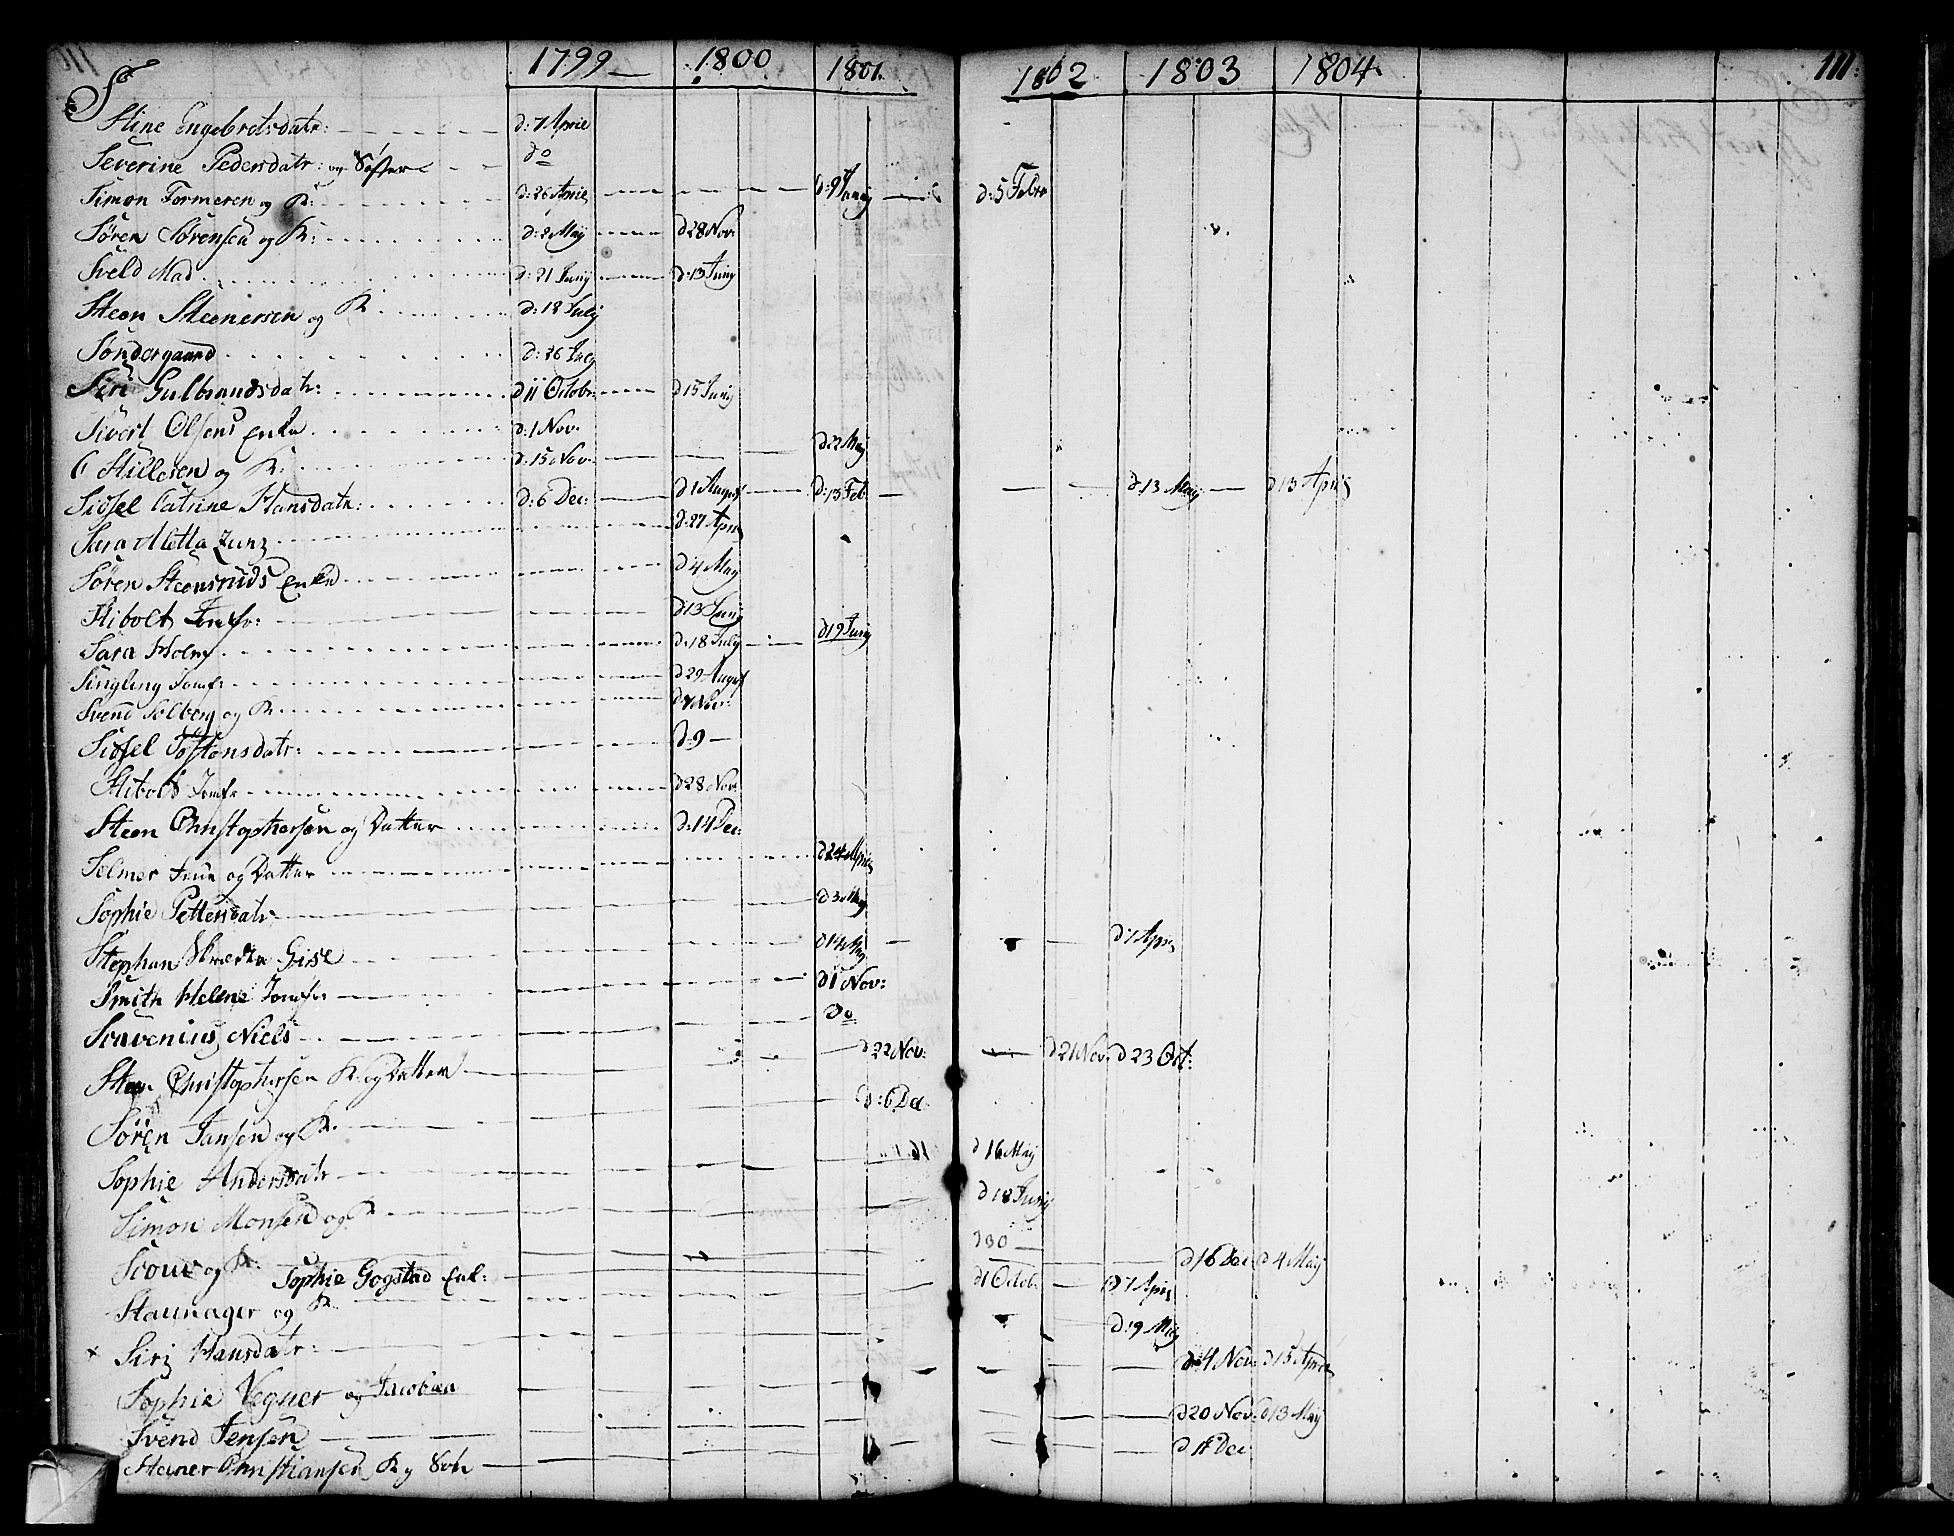 1799 1800 1801 1802 1803 1804 111:
S
Stine Engebretsdatr: d: 7 April
Severine Pedersdatr: og Søster do
Simon Formeren og K: d: 26 April d: 9 Junij d: 5 Febr
Søren Sørensen og K: d: 2 Maij d 28 Nov:
Sveld Mad. d: 21 Junij d: 13 Junij
Steen Steenersen og K d: 18 Julij
Søndergaard d: 26 Julij
Siri Gulbrandsdatr: d 11 Octobr: d 15 Junij
Sivert Olsens Enke d: 1 Nov:
Stillesen og K: d: 15 Nov: d: 22 Maij
Sidsel Catrine Hansdatr: d: 6 Dec: d 1 August d: 13 Feb d: 13 Maij d 13 April
Sara Metta d: 27 April
Søren Steensruds Enke d 4 Maij
Stibolt Jomfr: d 13 Junij
Sara Holm d: 18 Julij d 19 Junij
Singling Jomfr: d 29 August
Svend Solberg og K. d 7 Nov:
Sidsel Tostensdatr: d: 9
Stibolt Jomfr d 28 Nov:
Steen Christophersen og Datter d: 14 Dec:
Selmer Frue og Datter d 24 April
Sophie Pettersdatr d 3 Maij
Stephan Skræder Girse d 14 Maij d 7 April
Smith Helene Jomfr: d 1 Nov:
Scavenius Niels do
Steen Christophersen K. og Datter d 22 Nov: d 21 Nov: d 23 Oct:
Søren Jansen og K. d: 6 Dec
Sophie Andersdatr d 16 Maij
Simon Monsen og K d 18 Junij
Scoue og K: d 30
Sophie Gogstad Enk: d 16 Dec d 4 Maij
Staunager og K. d 1 Octob: d 7 April
x Siri Hansdatr: d: 9 Maij
Sophie Vegner og Jacobæa d 4 Nov: d 15 April
Svend Jensen d 20 Nov: d 13 Maij
Stener Christiansen, K og Søn d 11 Dec